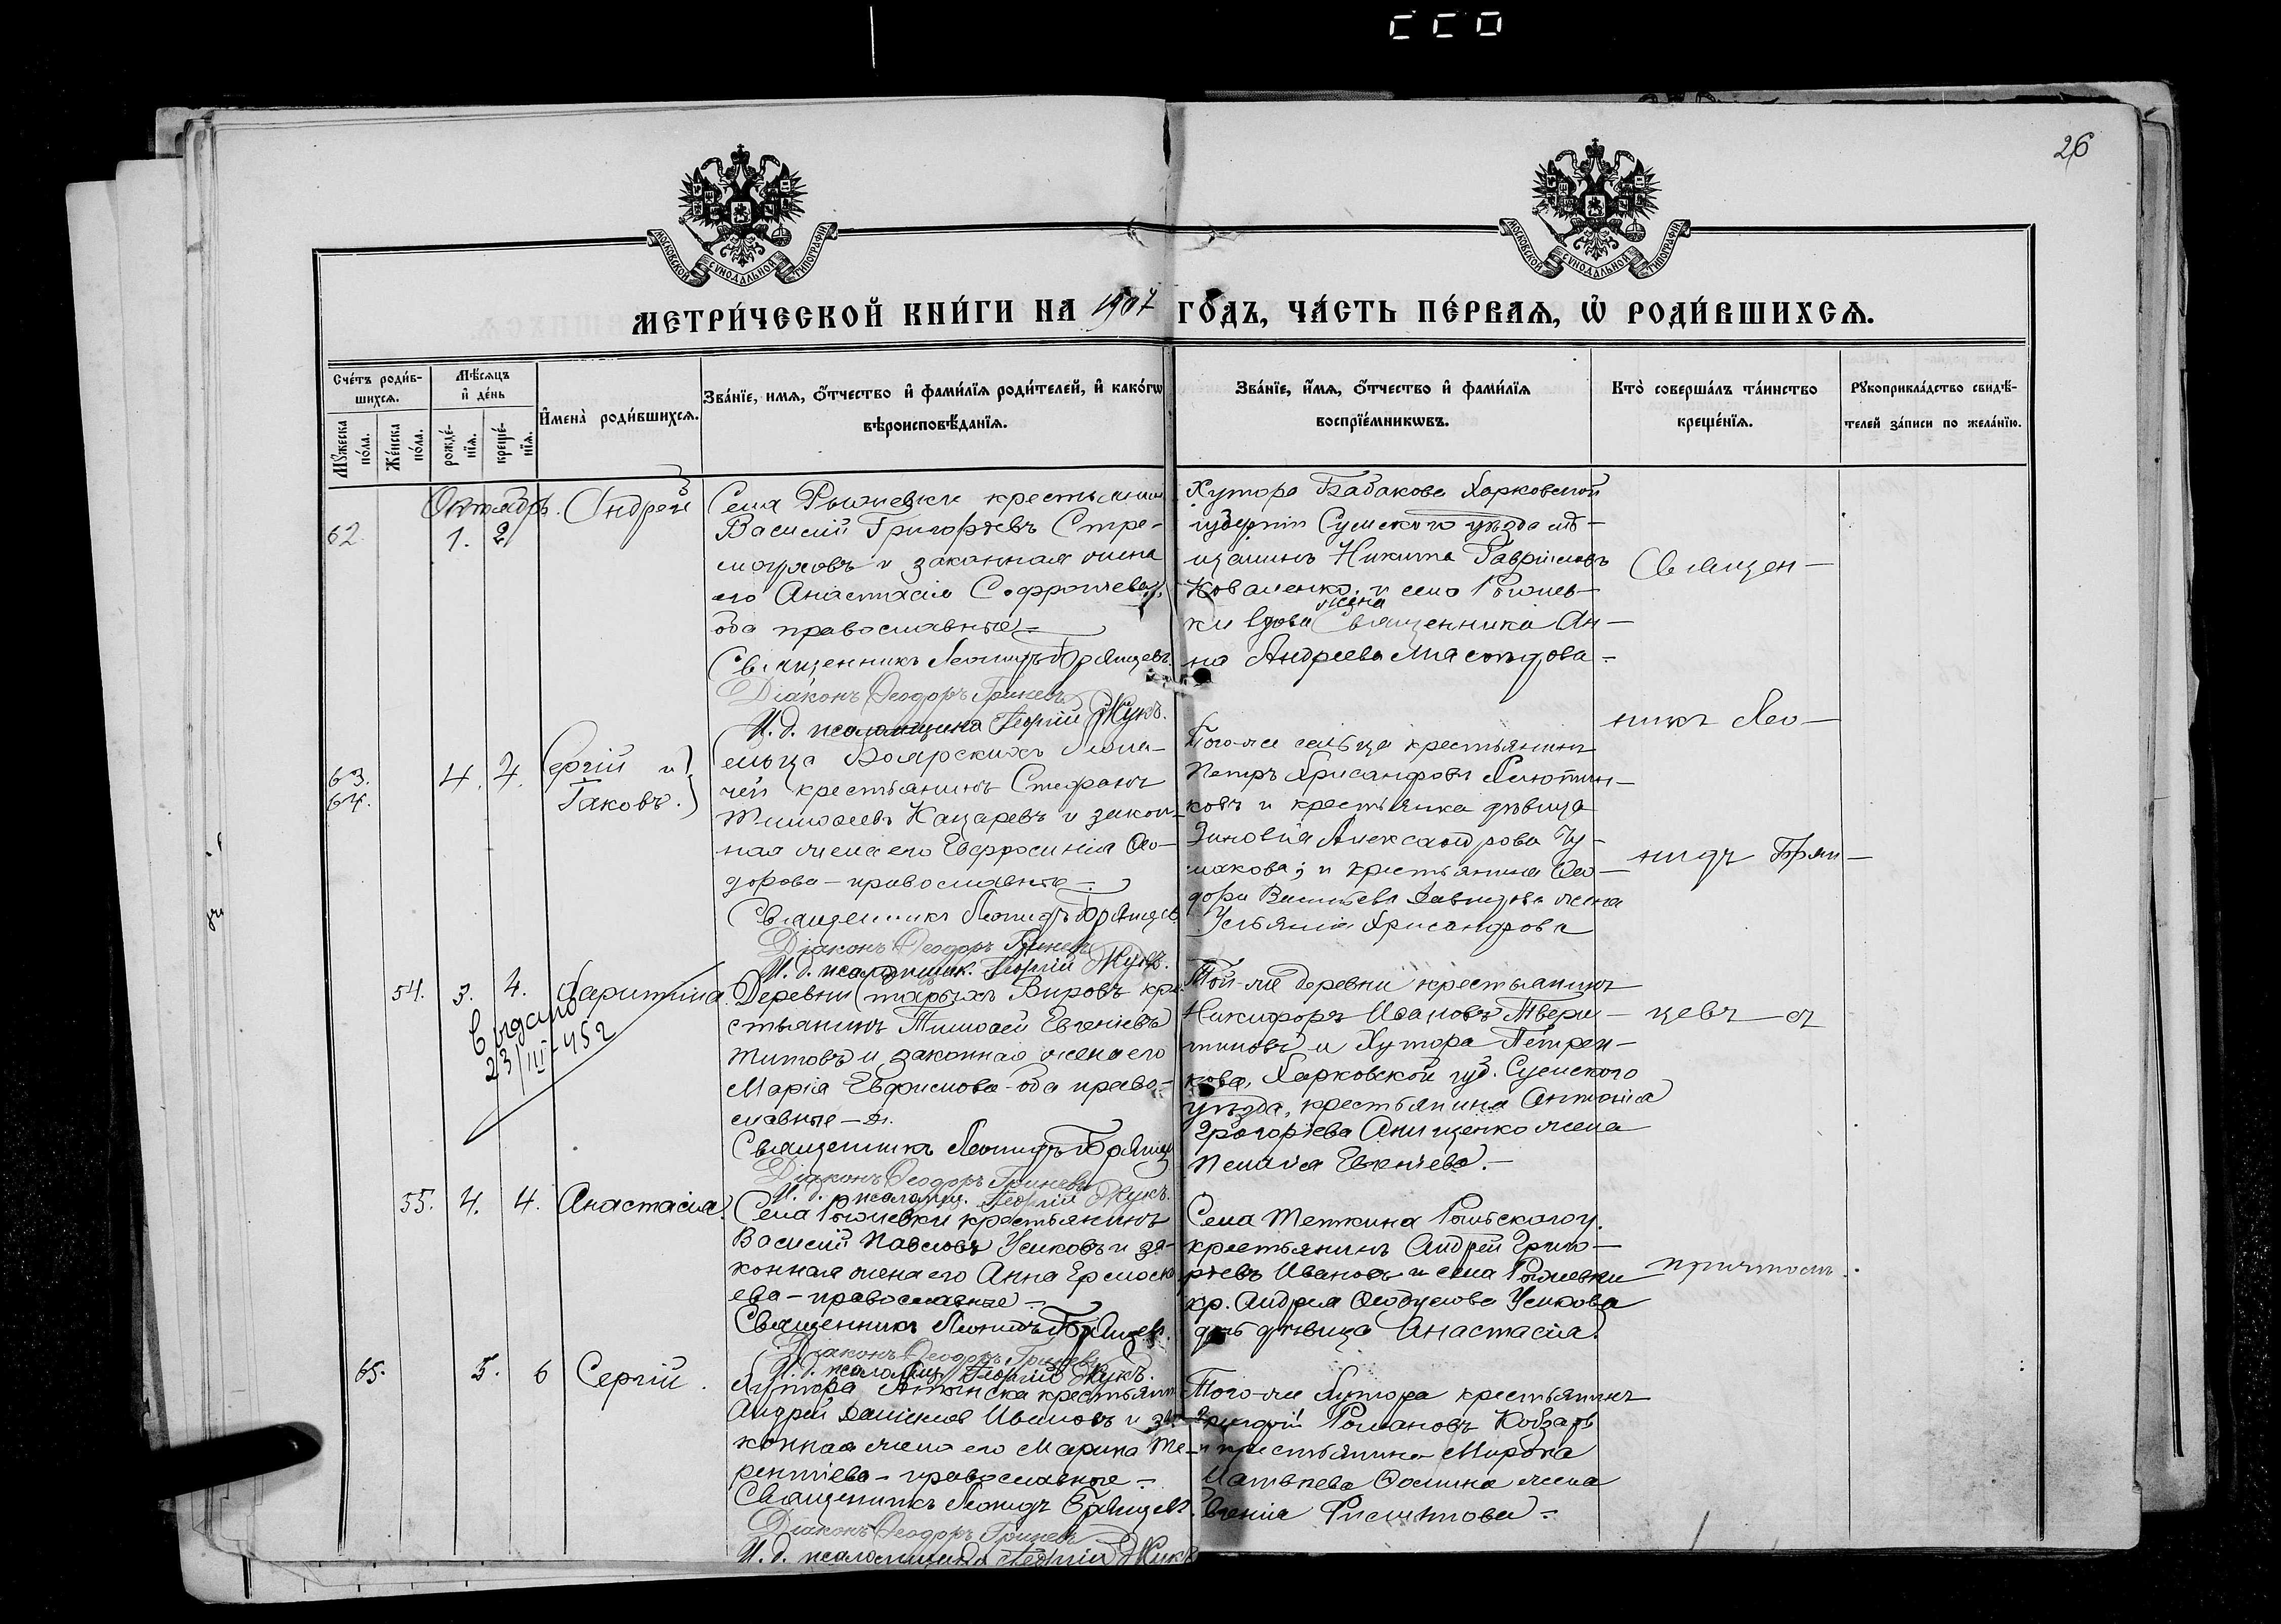 26
МОСКОВСКОЙ СѴНОДАЛЬНОЙ ТИПОГРАФІИ
МОСКОВСКОЙ СѴНОДАЛЬНОЙ ТИПОГРАФІИ
МЕТРИ́ЧЕСКОЙ КНИ́ГИ НА 1907 ГО́ДЪ, ЧА́СТЬ ПЕ́РВАЯ, Ѡ РОДИ́ВШИХСЯ.
Сче́тъ роди́в-
шихся.
Мѣ́сяцъ
и де́нь
Му́жеска
по́ла.
Же́нска
по́ла.
рожде́-
нїя.
креще́-
нїя.
Имена̀ роди́вшихся.
Зва́нїе, имя, о́тчество и фами́лїя роди́телей, и како́гѡ
вѣроисповѣ́данїя.
Зва́нїе, и́мя, о́тчество и фами́лїя
воспрїе́мникѡвъ.
Кто̀ соверша́лъ та́инство
креще́нїя.
Рукоприкла́дство свидѣ́-
телей за́писи по жела́нїю.
Октябрь.
62
1. 2
Андрей
Села Рыжевки крестьянин
Василій Григорьевъ Стре-
моуховъ и законная жена
его Анастасія Софроніева,
оба православные
Священникъ Леонидъ Брянцевъ
Діаконъ Ѳеодоръ Гриневъ
И. д. псаломщика Георгій Жукъ.
Хутора Бабакова Харковской
губерніи Сумского уѣзда мѣ-
щанинъ Никита Гавріиловъ
Коваленко и села Рыжев-
ки вдова жена Священника Ан-
на Андреева
63.
64.
4. 4.
Сергій и
Іаковъ.
Сельца Боярскихъ Лежа-
чей крестьянинъ Стефанъ
Тимоѳеевъ Кацаревъ и закон-
ная жена его Евфросинія Ѳео-
дорова - православные
Священникъ Леонидъ Брянцев
Діаконъ Ѳеодоръ Гриневъ
И. д. псаломщик. Георгій Жукъ.
Того-же сельца крестьянинъ
Петръ Хрисанфовъ
ковъ и крестьянка дѣвица
Зиновія Александрова Чу-
макова; и крестьянина Ѳео-
дора Васильева Давидова жена
Ульянія Хрисанфова
54.
3. 4.
Харитина
Выдано
23/III-452
Деревни Старыхъ Вировъ кре
стьянинъ Тимоѳей Евгеніевъ
Титовъ и законная жена его
Марія Евфимова оба право-
славные
Священникъ Леонидъ Брянцев
Діаконъ Ѳеодоръ Гриневъ
И. д. псаломщ. Георгій Жукъ.
Той-же деревни крестьянинъ
Никифоръ Ивановъ Твери-
тиновъ и Хутора Петрен-
кова, Харковской губ. Сумского
уѣзда, крестьянина Антонія
Григорьева Анищенко жена
Пелагія Евгеніева.
55.
4. 4.
Анастасія
Села Рыжевки крестьянинъ
Василій Павловъ Усиковъ и за-
конная жена его Анна
ева - православные
Священникъ Леонидъ Брянцев.
Діаконъ Ѳеодоръ Гриневъ
И. д. псаломщ. Георгій Жукъ.
Села Теткина Рыльскаго у.
крестьянинъ Андрей Григо-
рьевъ Ивановъ и села Рыжевки
кр. Андрея Усикова
дочь дѣвица Анастасія.
65.
5. 6
Сергій.
Хутора Атынска крестьянин
Андрей Даниловъ Ивановъ и за-
конная жена его Марина Те-
рентіева - православные
Священникъ Леонидъ Брянцевъ
Діаконъ Ѳеодоръ Гриневъ
И. д. псаломщика Георгій Жукъ
Того-же Хутора крестьянинъ
Григорій Романовъ Кобзарь
и крестьянина Мирона
Матвѣева Ѳомина жена
Евгенія
Священ-
никъ Лео-
нидъ Брян-
цевъ съ
причтомъ.